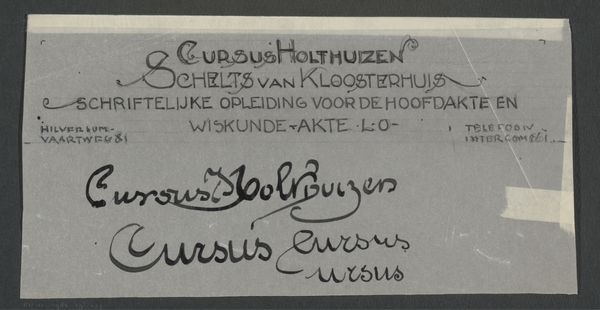 CURSUS HOLTHUIZEN
SCHELTS VAN KLOOSTERHUIS
SCHRIFTELIJKE OPLEIDING VOOR DE HOOFDAKTE EN
WISKUNDE-AKTE-L-O-
HILVERSUM-
VAARTWEG 81
TELEFOON
INTERCOM 861
Cursus Holthuizen
Cursus Cursus
ursus